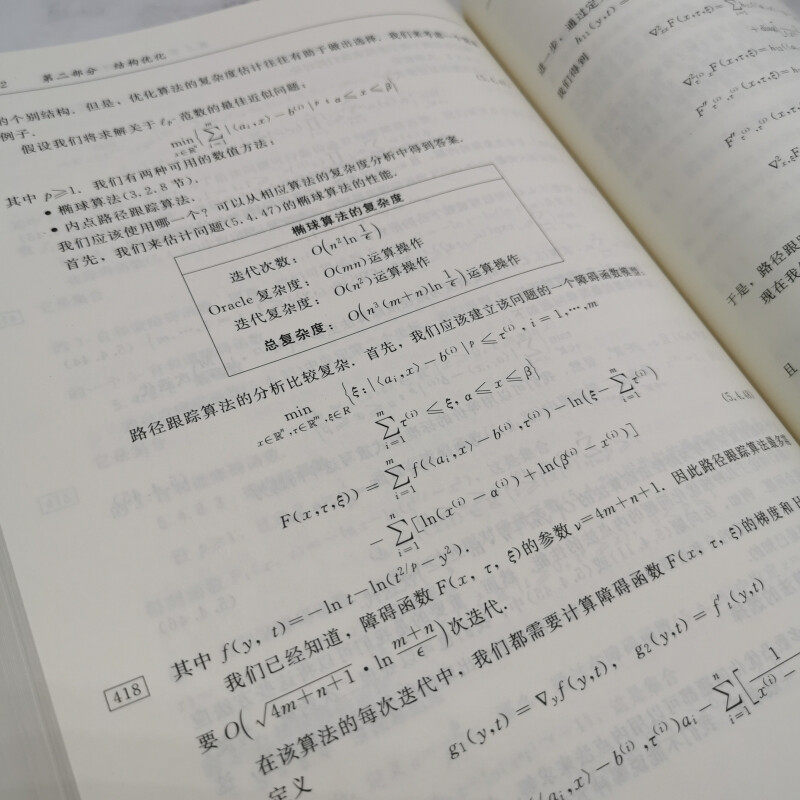 2 第二部分 结构优化
的个别结构. 但是, 优化算法的复杂度估计往往有助于做出选择. 我们来考虑一个
例子.
假设我们将求解关于 ℓp 范数的最佳近似问题:
min x∈Rⁿ {∑_{i=1}^{m} |⟨a_i,x⟩−b^(i)|^p : α≤x≤β}
其中 p≥1. 我们有两种可用的数值方法:
• 椭球算法(3.2.8 节).
• 内点路径跟踪算法.
我们应该使用哪一个? 可以从相应算法的复杂度分析中得到答案.
首先, 我们来估计问题(5.4.47)的椭球算法的性能.
椭球算法的复杂度
迭代次数: O(n² ln 1/ϵ)
Oracle 复杂度: O(mn)运算操作
迭代复杂度: O(n²)运算操作
总复杂度: O(n³(m+n)ln 1/ϵ)运算操作
路径跟踪算法的分析比较复杂. 首先, 我们应该建立该问题的一个障碍函数模型:
min x∈Rⁿ,τ∈Rᵐ,ξ∈R {ξ: |⟨a_i,x⟩−b^(i)|^p ≤ τ^(i), i=1,⋯,m
∑_{i=1}^{m} τ^(i) ≤ ξ, α≤x≤β}
(5.4.48)
F(x,τ,ξ)) = ∑_{i=1}^{m} f(⟨a_i,x⟩−b^(i),τ^(i)) − ln(ξ−∑_{i=1}^{m} τ^(i))
−∑_{i=1}^{n} [ln(x^(i)−α^(i)) + ln(β^(i)−x^(i))]
其中 f(y, t)=−ln t−ln(t^{2/p}−y²).
我们已经知道, 障碍函数 F(x, τ, ξ)的参数 ν=4m+n+1. 因此路径跟踪算法最多需
418
要 O(√(4m+n+1) · ln (m+n)/ϵ)次迭代.
在该算法的每次迭代中, 我们都需要计算障碍函数 F(x, τ, ξ)的梯度和 H
定义
g₁(y,t)=∇_y f(y,t), g₂(y,t)=f′_t(y,t)
⟩−b^(i),τ^(i))a_i−∑_{i=1}^{n}[1/(x^(i)−
进一步, 通过定
h₁₂(y,t)=
我们得到
于是, 路径跟
现在我
且